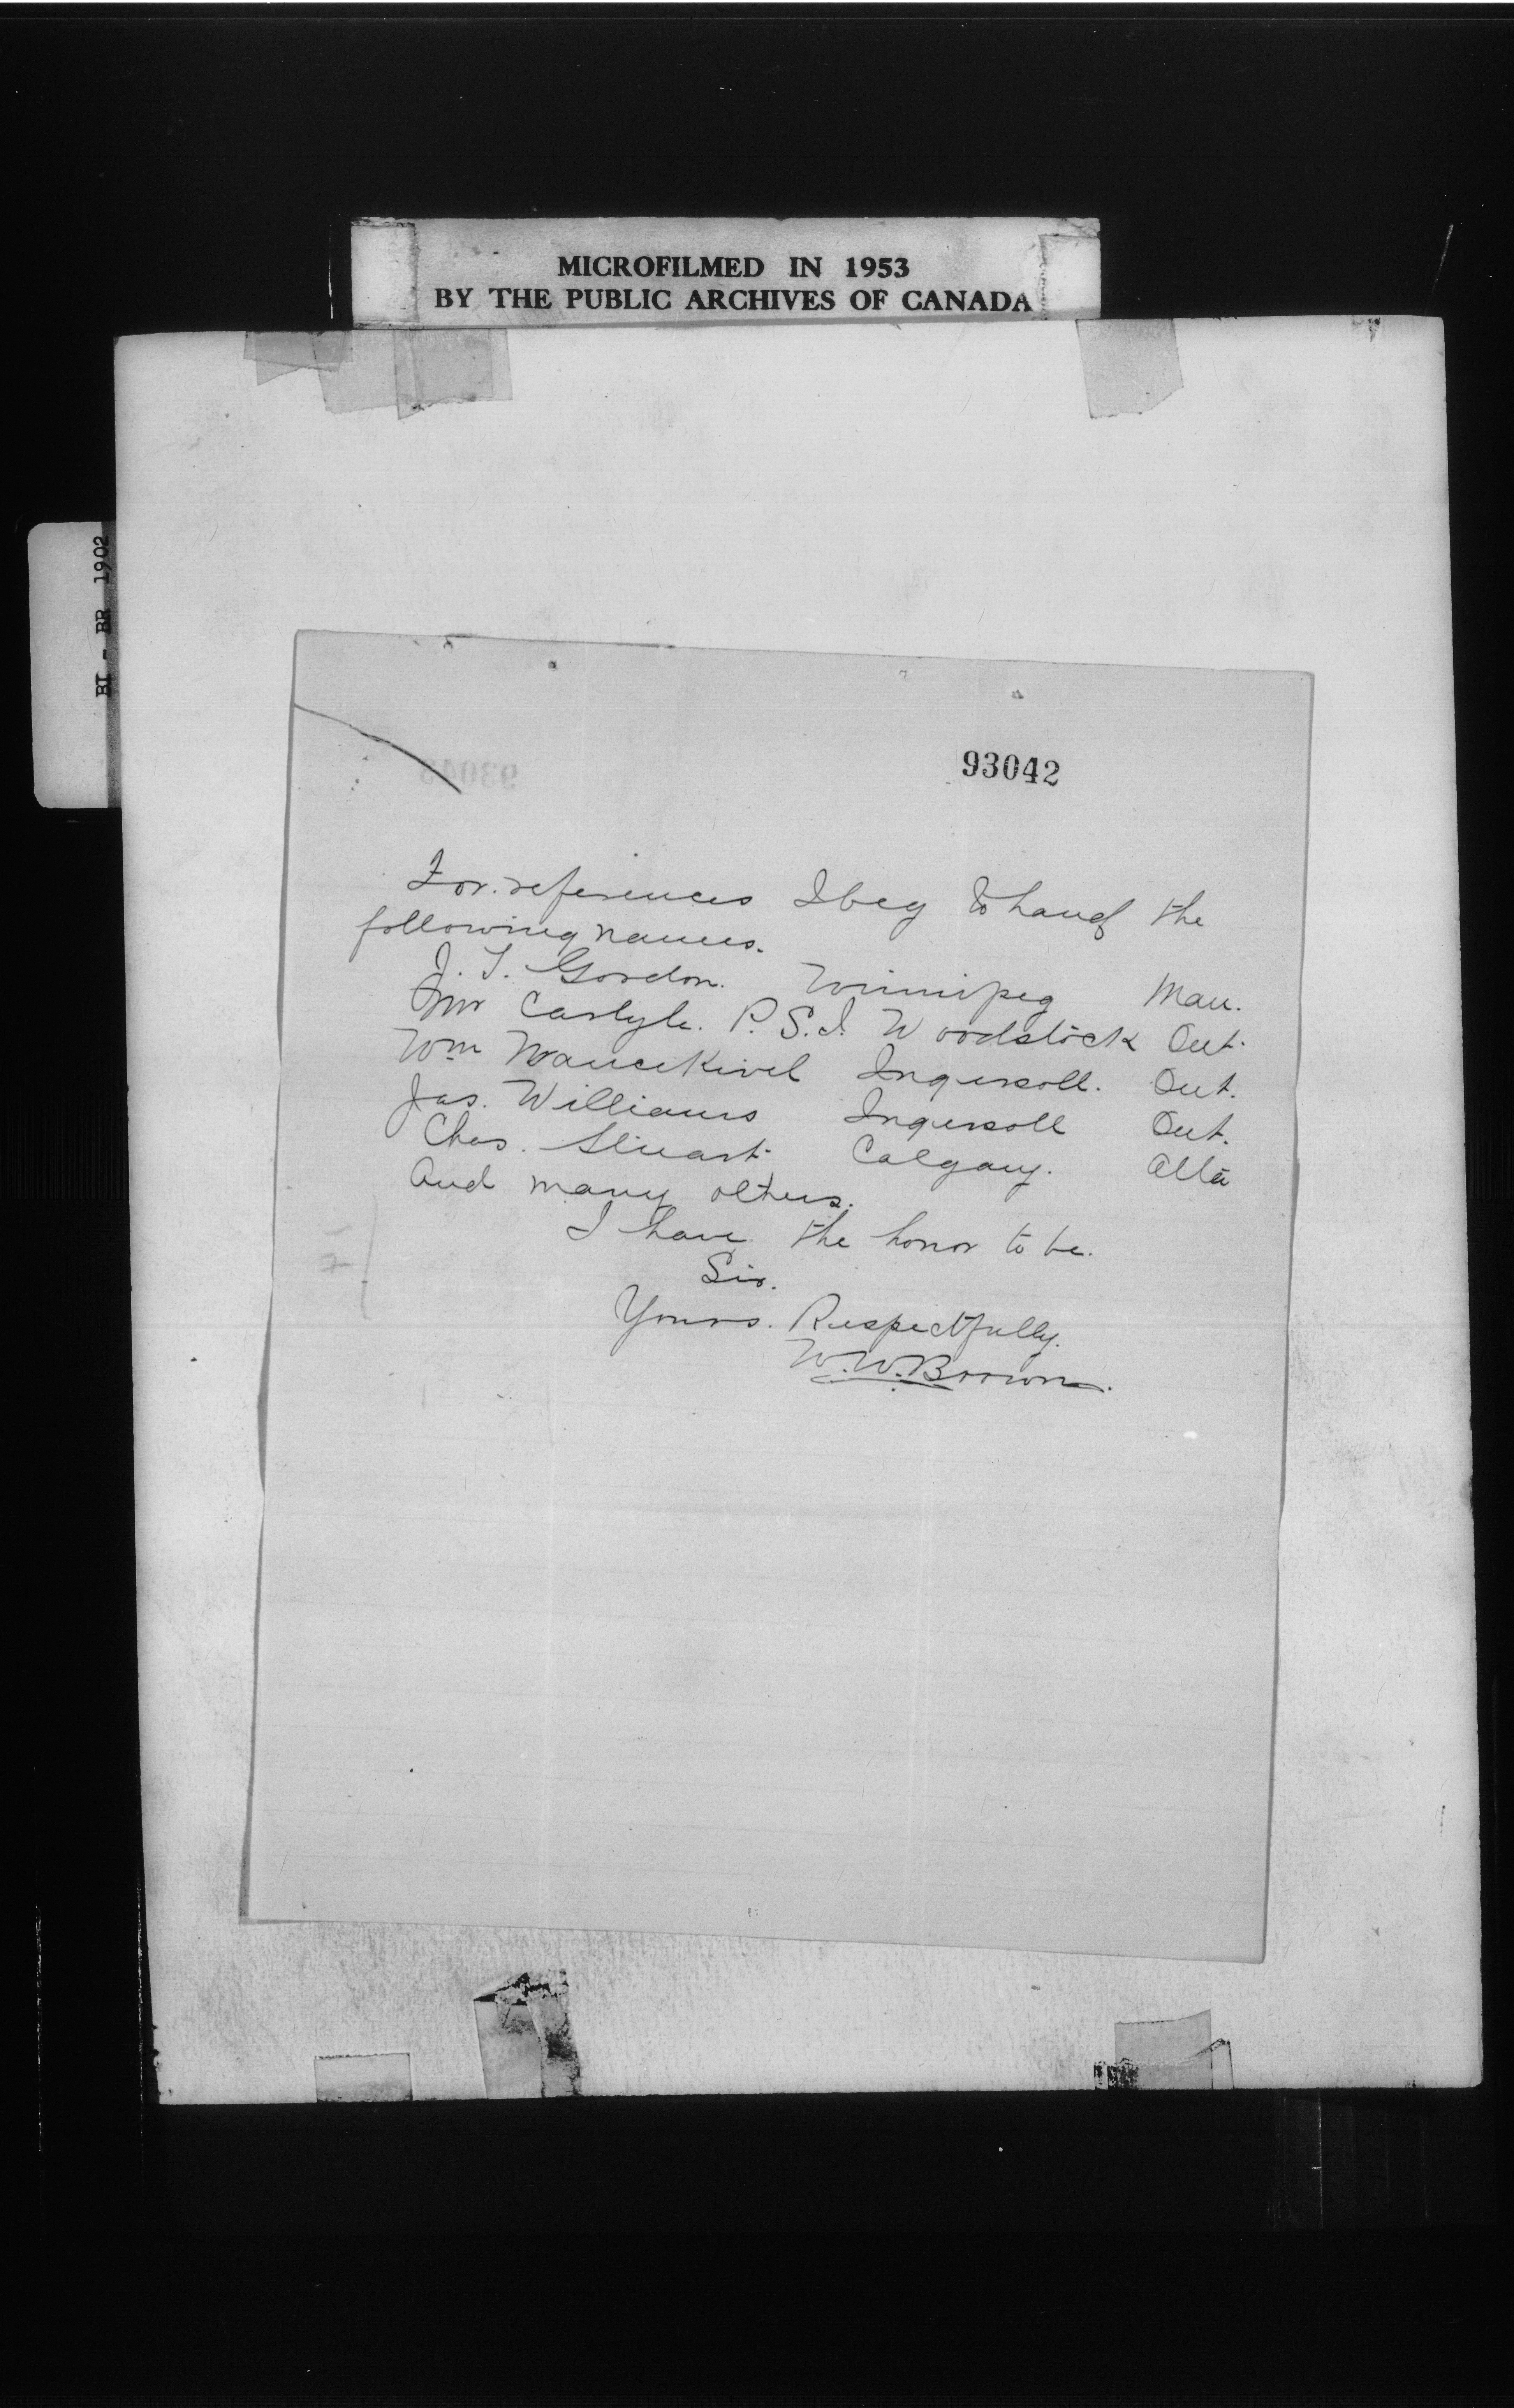 MICROFILMED IN 1953
BY THE PUBLIC ARCHIVES OF CANADA
BI - BR 1902
93042
For references I beg to hand the
following names.
J. T. Gordon. Winnipeg Man.
Mr Carlyle. P.S.I. Woodstock Ont.
Wm Ingersoll. Ont.
Jas. Williams Ingersoll Ont.
Chas. Stuart Calgary. Alta
And many others.
I have the honor to be.
Sir.
Yours. Respectfully.
W.W. Brown.